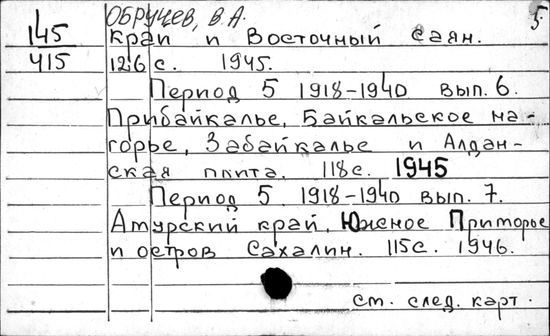 ОБРУЧЕВ, В.А. 5.
145
415
край и Восточный Саян.
126 с. 1945.
Период 5 1918-1940 вып. 6.
Прибайкалье, Байкальское на-
горье, Забайкалье и Алдан-
ская плита. 118с. 1945
Период 5. 1918-1940 вып. 7.
Амурский край, Южное Приморье
и остров Сахалин. 115с. 1946.
см. след. карт.